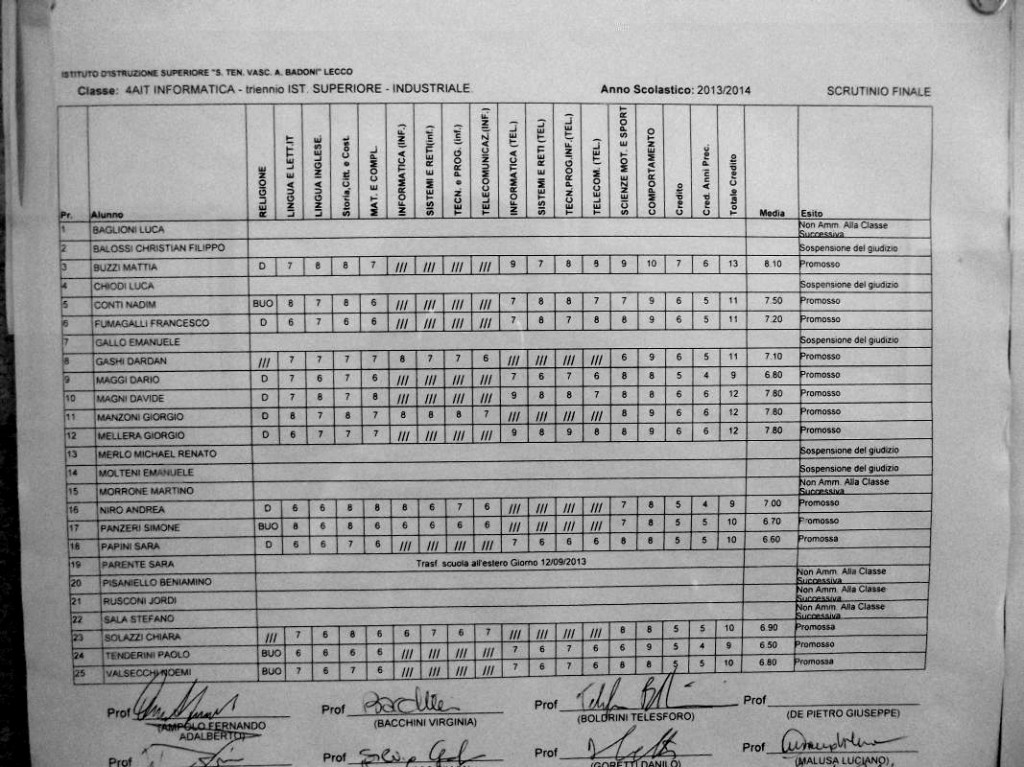 ISTITUTO D'ISTRUZIONE SUPERIORE "S. TEN. VASC. A. BADONI" LECCO
Classe: 4AIT INFORMATICA - triennio IST. SUPERIORE - INDUSTRIALE. Anno Scolastico: 2013/2014 SCRUTINIO FINALE
Pr. Alunno RELIGIONE LINGUA E LETT.IT LINGUA INGLESE. Storia,Citt. e Cost. MAT. E COMPL. INFORMATICA (INF.) SISTEMI E RETI(inf.) TECN. e PROG. (inf.) TELECOMUNICAZ.(INF.) INFORMATICA (TEL.) SISTEMI E RETI (TEL) TECN.PROG.INF.(TEL.) TELECOM. (TEL.) SCIENZE MOT. E SPORT COMPORTAMENTO Credito Cred. Anni Prec. Totale Credito Media Esito
1 BAGLIONI LUCA Non Amm. Alla Classe Successiva
2 BALOSSI CHRISTIAN FILIPPO Sospensione del giudizio
3 BUZZI MATTIA D 7 8 8 7 /// /// /// /// 9 7 8 8 9 10 7 6 13 8.10 Promosso
4 CHIODI LUCA Sospensione del giudizio
5 CONTI NADIM BUO 8 7 8 6 /// /// /// /// 7 8 8 7 7 9 6 5 11 7.50 Promosso
6 FUMAGALLI FRANCESCO D 6 7 6 6 /// /// /// /// 7 8 7 8 8 9 6 5 11 7.20 Promosso
7 GALLO EMANUELE Sospensione del giudizio
8 GASHI DARDAN /// 7 7 7 7 8 7 7 6 /// /// /// /// 6 9 6 5 11 7.10 Promosso
9 MAGGI DARIO D 7 6 7 6 /// /// /// /// 7 6 7 6 8 8 5 4 9 6.80 Promosso
10 MAGNI DAVIDE D 7 8 7 8 /// /// /// /// 9 8 8 7 8 8 6 6 12 7.80 Promosso
11 MANZONI GIORGIO D 8 7 8 7 8 8 8 7 /// /// /// /// 8 9 6 6 12 7.80 Promosso
12 MELLERA GIORGIO D 6 7 7 7 /// /// /// /// 9 8 9 8 8 9 6 6 12 7.80 Promosso
13 MERLO MICHAEL RENATO Sospensione del giudizio
14 MOLTENI EMANUELE Sospensione del giudizio
15 MORRONE MARTINO Non Amm. Alla Classe Successiva
16 NIRO ANDREA D 6 6 8 8 8 6 7 6 /// /// /// /// 7 8 5 4 9 7.00 Promosso
17 PANZERI SIMONE BUO 8 6 8 6 6 6 6 6 /// /// /// /// 7 8 5 5 10 6.70 Promosso
18 PAPINI SARA D 6 6 7 6 /// /// /// /// 7 6 6 6 8 8 5 5 10 6.60 Promossa
19 PARENTE SARA Trasf. scuola all'estero Giorno 12/09/2013
20 PISANIELLO BENIAMINO Non Amm. Alla Classe Successiva
21 RUSCONI JORDI Non Amm. Alla Classe Successiva
22 SALA STEFANO Non Amm. Alla Classe Successiva
23 SOLAZZI CHIARA /// 7 6 8 6 6 7 6 7 /// /// /// /// 8 8 5 5 10 6.90 Promossa
24 TENDERINI PAOLO BUO 6 6 6 6 /// /// /// /// 7 6 7 6 6 9 5 4 9 6.50 Promosso
25 VALSECCHI NOEMI BUO 7 6 7 6 /// /// /// /// 7 6 7 6 8 8 5 5 10 6.80 Promossa
Prof Prof Prof Prof
(AMPOLO FERNANDO ADALBERTO) (BACCHINI VIRGINIA) (BOLDRINI TELESFORO) (DE PIETRO GIUSEPPE)
Prof Prof Prof Prof
(GORETTI DANILO) (MALUSA LUCIANO),